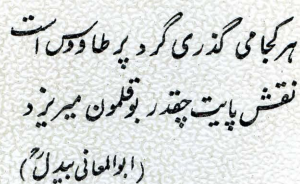 هر کجا می گذری گرد پر طاووس است
نقش پایت چقدر بوقلمون میریزد
(ابوالمعانی بیدلؒ)